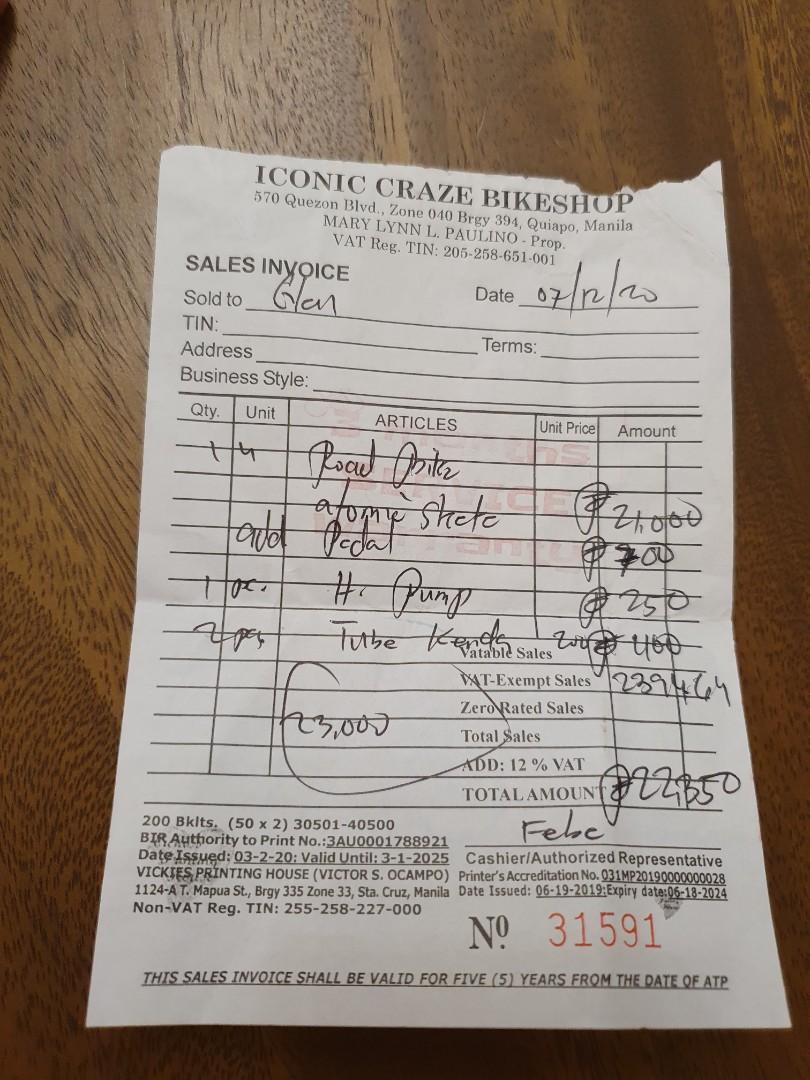 ICONIC CRAZE BIKESHOP
570 Quezon Blvd., Zone 040 Brgy 394, Quiapo, Manila
MARY LYNN L. PAULINO - Prop.
VAT Reg. TIN: 205-258-651-001
SALES INVOICE
Sold to Glen Date 07/12/20
TIN:
Address Terms:
Business Style:
Qty. Unit ARTICLES Unit Price Amount
1 Road Bike
₱ 21,000
add Pedal ₱ 700
1 pc. H. Pump ₱ 250
2 pcs Tube Kenda 200 ₱ 400
Vatable Sales
VAT-Exempt Sales
23,000
Zero Rated Sales
Total Sales
ADD: 12 % VAT
TOTAL AMOUNT ₱22,350
200 Bklts. (50 x 2) 30501-40500
BIR Authority to Print No.:3AU0001788921
Date Issued: 03-2-20: Valid Until: 3-1-2025
VICKIES PRINTING HOUSE (VICTOR S. OCAMPO)
1124-A T. Mapua St., Brgy 335 Zone 33, Sta. Cruz, Manila
Non-VAT Reg. TIN: 255-258-227-000
Febe
Cashier/Authorized Representative
Printer's Accreditation No. 031MP20190000000028
Date Issued: 06-19-2019:Expiry date:06-18-2024
Nº 31591
THIS SALES INVOICE SHALL BE VALID FOR FIVE (5) YEARS FROM THE DATE OF ATP